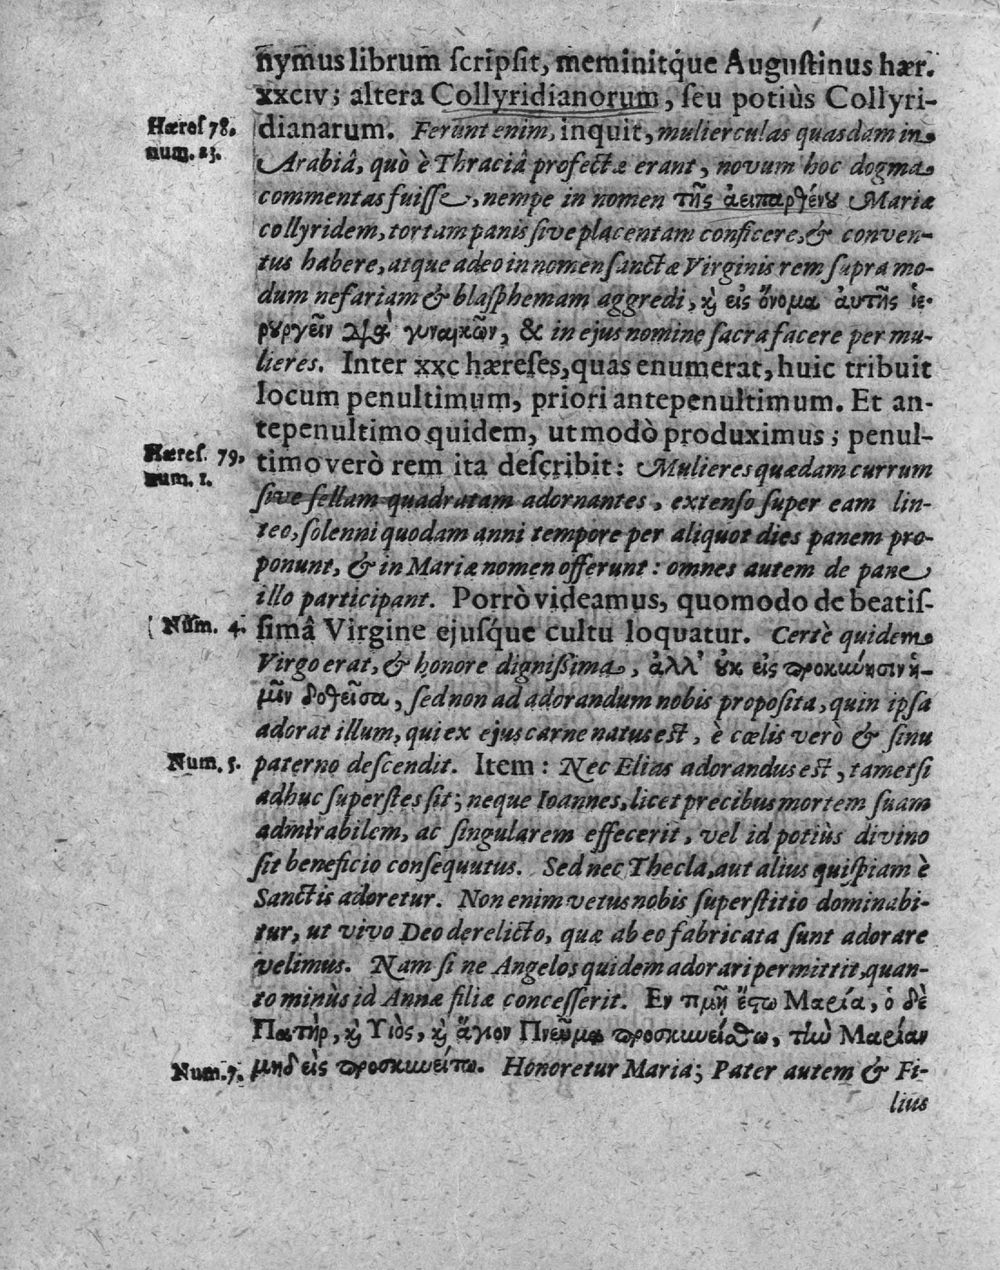 nymus librum ſcripſit, meminitq́ue Auguſtinus hær.
xxciv; altera Collyridianorum, ſeu potiùs Collyri-
Hæreſ 78.
num. 23.
dianarum. Ferunt enim, inquit, mulierculas quasdam in
Arabiâ, quò è Thraciâ profectæ erant, novum hoc dogma
commentas fuiſſe, nempe in nomen τῆς ἀειπαρθένȣ Mariæ
collyridem, tortam panis ſive placentam conficere, & conven-
tus habere, atque adeo in nomen ſanctæ Virginis rem ſupra mo-
dum nefariam & blaſphemam aggredi, ϗ εἰς ὄνομα ἀυτῆς ἱε-
ρȣργεῖν διὰ γυναικῶν, & in ejus nomine ſacra facere per mu-
lieres. Inter xxc hæreſes, quas enumerat, huic tribuit
locum penultimum, priori antepenultimum. Et an-
tepenultimo quidem, ut modò produximus; penul-
Hæreſ. 79.
num. 1.
timo verò rem ita deſcribit: Mulieres quædam currum
ſive ſellam quadratam adornantes, extenſo ſuper eam lin-
teo, ſolenni quodam anni tempore per aliquot dies panem pro-
ponunt, & in Mariæ nomen offerunt: omnes autem de pane
illo participant. Porrò videamus, quomodo de beatiſ-
Num. 4.
ſimâ Virgine ejuſq́ue cultu loquatur. Certè quidem
Virgo erat, & honore digniſſima, ἀλλ' ȣκ εἰς προσκύνησιν ἡ-
μῖν δοθεῖσα, ſed non ad adorandum nobis propoſita, quin ipſa
adorat illum, qui ex ejus carne natus eſt, è cœlis verò & ſinu
Num. 5.
paterno deſcendit. Item: Nec Elias adorandus eſt, tametſi
adhuc ſuperſtes ſit; neque Ioannes, licet precibus mortem ſuam
admirabilem, ac ſingularem effecerit, vel id potiùs divino
ſit beneficio conſequutus. Sed nec Thecla, aut alius quiſpiam è
Sanctis adoretur. Non enim vetus nobis ſuperſtitio dominabi-
tur, ut vivo Deo derelicto, quæ ab eo fabricata ſunt adorare
velimus. Nam ſi ne Angelos quidem adorari permittit, quan-
to minùs id Annæ filiæ conceſſerit. Εν τιμῇ ἔϛω Μαρία, ὁ δὲ
Πατὴρ, ϗ Υἱὸς, ϗ ἅγιον Πνεῦμα προσκυνείσθω, τὴν Μαρίαν
Num. 7.
μηδεὶς προσκυνείτω. Honoretur Maria; Pater autem & Fi-
lius